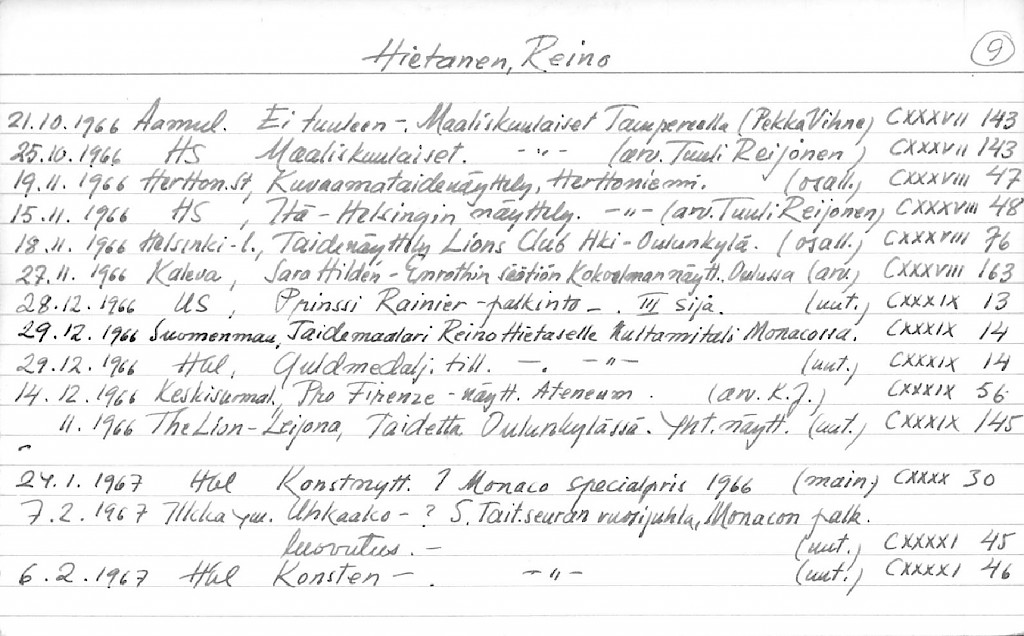 Hietanen, Reino 9
21.10.1966 Aamul. Ei tuuleen -. Maaliskuulaiset Tampereella (Pekka Vihne) CXXXVII 143
25.10.1966 HS Maaliskuulaiset. -"- (arv. Tuuli Reijonen) CXXXVII 143
19.11.1966 Hertton.st, Kuvaamataidenäyttely, Herttoniemi. (osall.) CXXXVIII 47
15.11.1966 HS, Itä-Helsingin näyttely. -"- (arv. Tuuli Reijonen) CXXXVIII 48
18.11.1966 Helsinki-l., Taidenäyttely Lions Club Hki-Oulunkylä. (osall.) CXXXVIII 76
27.11.1966 Kaleva, Sara Hildén - Enrothin säätiön Kokoelman näytt. Oulussa (arv.) CXXXVIII 163
28.12.1966 US, Prinssi Rainier-palkinto -. III sija. (uut.) CXXXIX 13
29.12.1966 Suomenmaa, Taidemaalari Reino Hietaselle Kultamitali Monacossa. CXXXIX 14
29.12.1966 Hbl, Guldmedalj till. -. -"- (uut.) CXXXIX 14
14.12.1966 Keskisuomal., Pro Firenze-näytt. Ateneum. (arv. K.J.) CXXXIX 56
11.1966 The Lion-Leijona, Taidetta Oulunkylässä. Yht. näytt. (uut.) CXXXIX 145
24.1.1967 Hbl Konstnytt. ? Monaco specialpris 1966 (main) CXXXX 30
7.2.1967 Ilkka ym. Uhkaako - ? S. Tait.seuran vuosijuhla, Monacon palk.
luovutus. - (uut.) CXXXXI 45
6.2.1967 Hbl Konsten -. -"- (uut.) CXXXXI 46